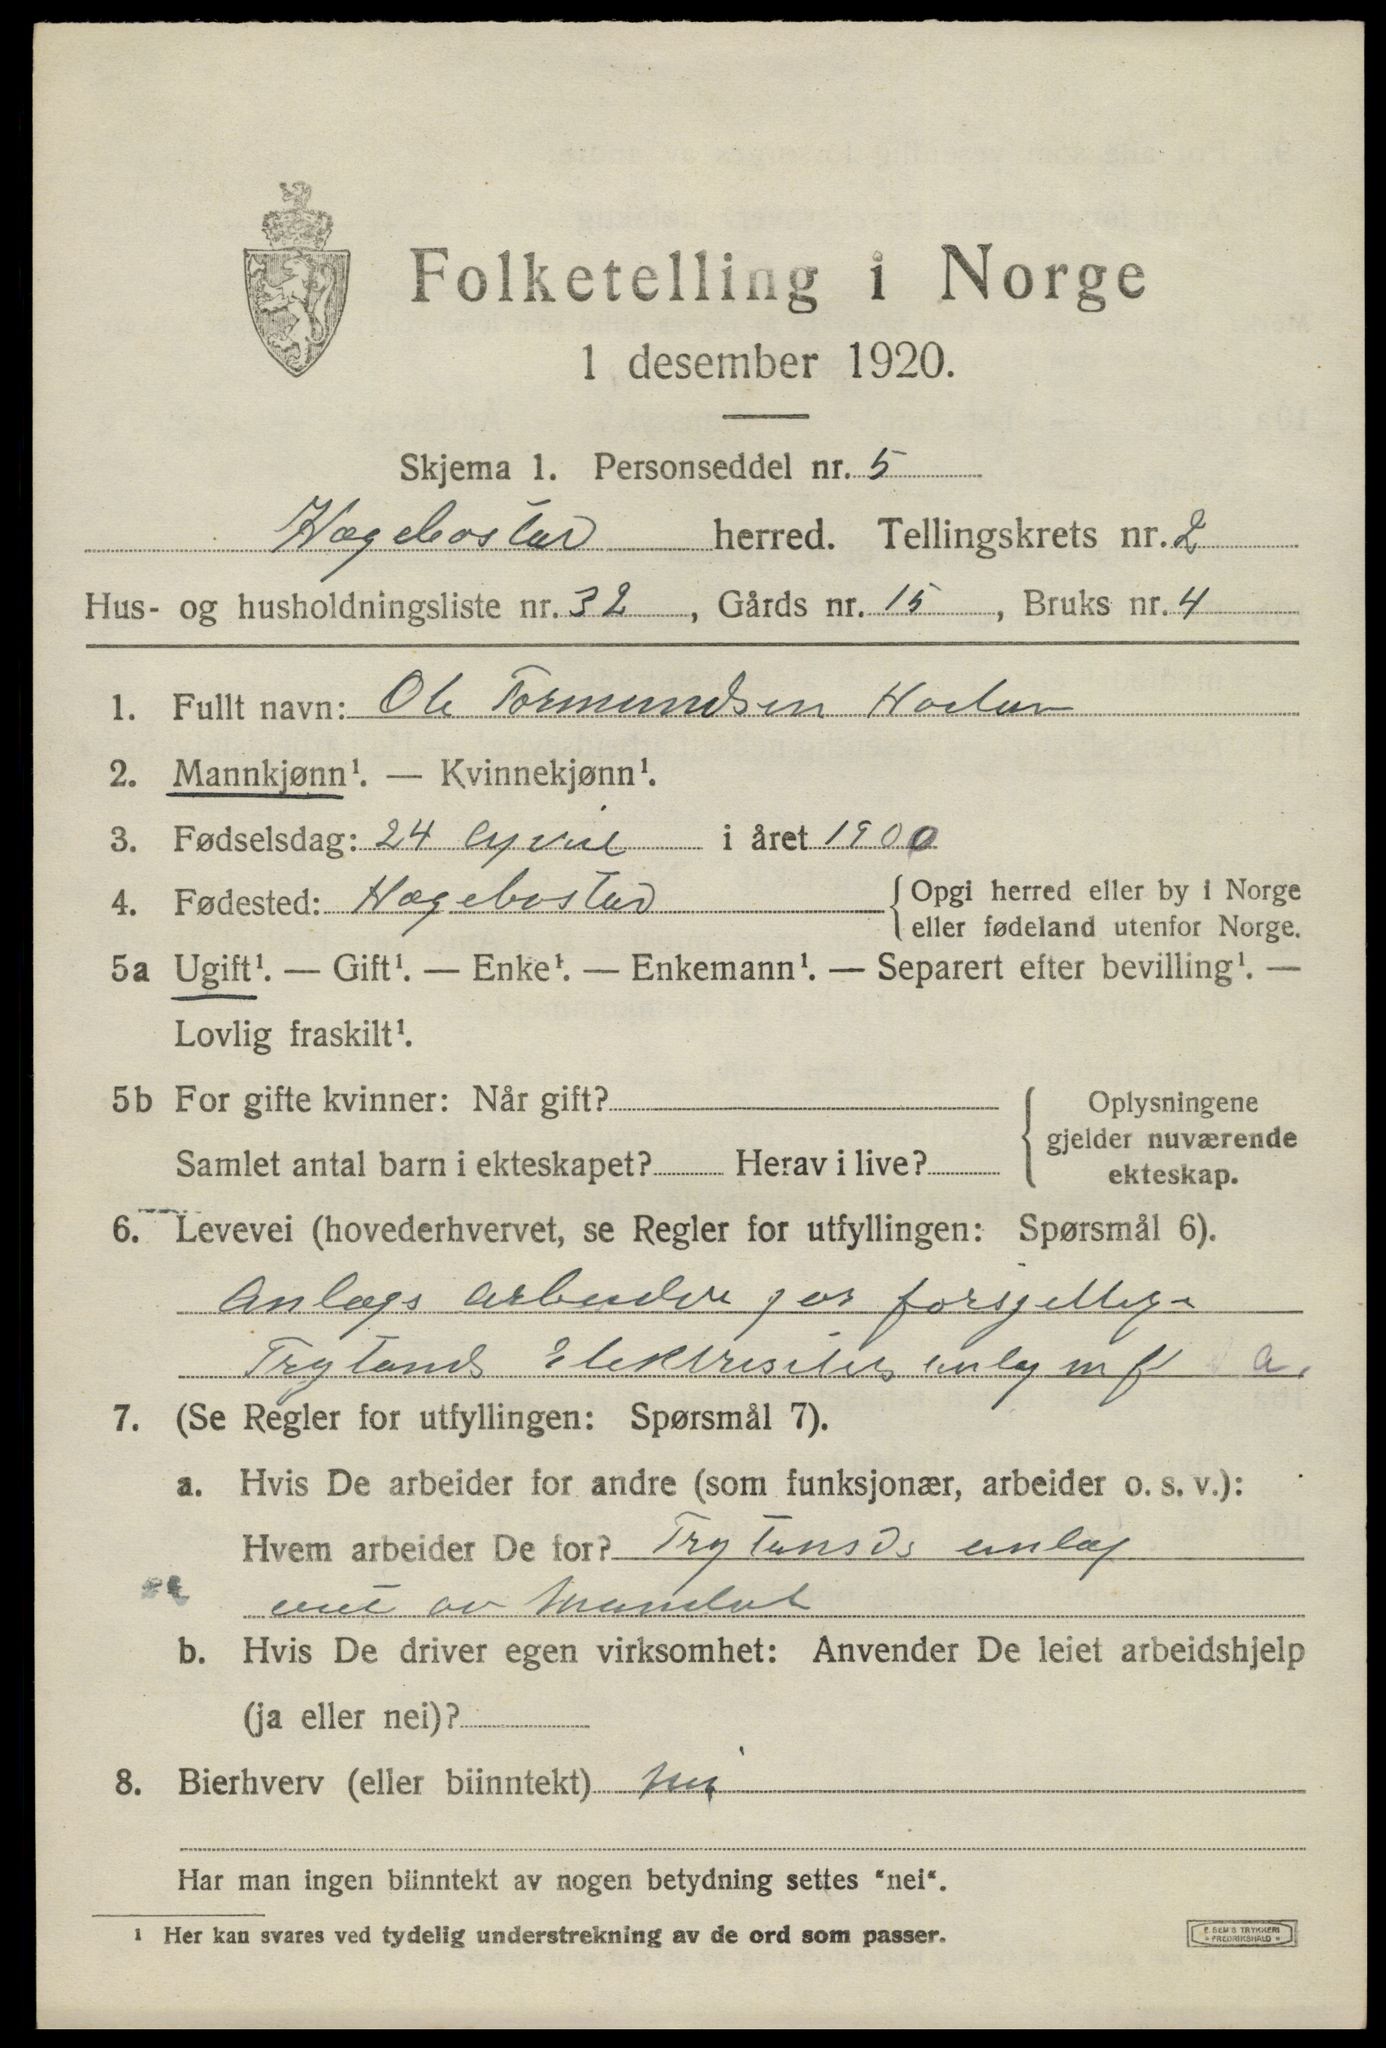 Folketelling i Norge
1 desember 1920.
Skjema 1. Personseddel nr. 5
Hægebostad herred. Tellingskrets nr. 2
Hus- og husholdningsliste nr. 32, Gårds nr. 15, Bruks nr. 4
1. Fullt navn: Ole Tormundsen
2. Mannkjønn¹. — Kvinnekjønn¹.
3. Fødselsdag: 24 april i året 1900
4. Fødested: Hægebostad { Opgi herred eller by i Norge
eller fødeland utenfor Norge.
5a Ugift¹. — Gift¹. — Enke¹. — Enkemann¹. — Separert efter bevilling¹. —
Lovlig fraskilt¹.
5b For gifte kvinner: Når gift?
Samlet antal barn i ekteskapet? Herav i live?
{ Oplysningene
gjelder nuværende
ekteskap.
6. Levevei (hovederhvervet, se Regler for utfyllingen: Spørsmål 6).
Anlægs arbeider
Trylands Elektrisitets
7. (Se Regler for utfyllingen: Spørsmål 7).
a. Hvis De arbeider for andre (som funksjonær, arbeider o. s. v.):
Hvem arbeider De for? Trylands anlæg
b. Hvis De driver egen virksomhet: Anvender De leiet arbeidshjelp
(ja eller nei)?
8. Bierhverv (eller biinntekt) nei
Har man ingen biinntekt av nogen betydning settes "nei".
¹ Her kan svares ved tydelig understrekning av de ord som passer.
E. SEM'S TRYKKERI
FREDRIKSHALD